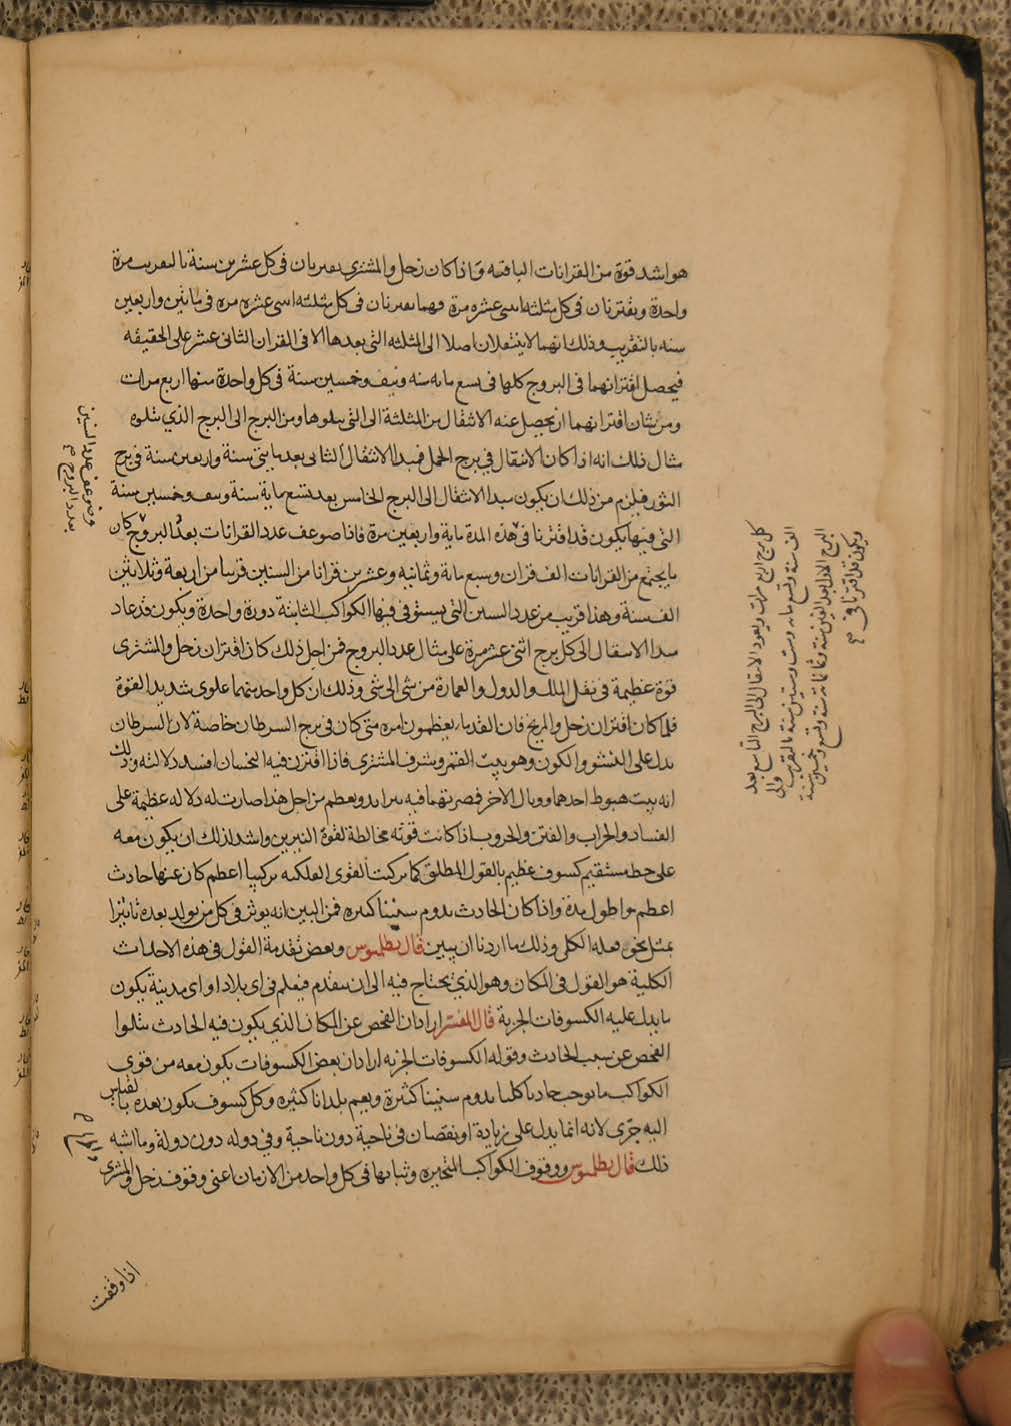 هو اشد قوة من القرانات الباقية واذا كان زحل والمشتري يقتربان في كل عشرين سنة بالتقريب مرة
واحدة ويقترنان في كل مثلثه اثنى عشره مرة فهما يقترنان في كل مثلثه اثنى عشره مره في مائتين واربعين
سنه بالتقريب وذلك انهما لا ينتقلان اصلا الى المثلثه التي بعدها الا في القران الثانى عشر على الحقيقه
فيحصل اقترانهما في البروج كلها في تسع مائه سنه ونيف وخمسين سنة في كل واحدة منها اربع مرات
ومن شان اقترانهما ان يحصل عنه الانتقال من المثلثة الى التي يتلوها ومن البرج الى البرج الذي يتلوه
مثال ذلك انه اذا كان الانتقال في برج الحمل فمبدا الانتقال الثانى بعد مايتى سنة واربعين سنة في برج
الثور فيلزم من ذلك ان يكون مبدا الانتقال الى البرج الخامس بعد تسع ماية سنة ونيف وخمسين سنة
التي فيها يكون قد اقترنا في هذه المدة ماية واربعين مرة فاذا ضوعف عدد القرانات بعدد البروج كان
ما يجتمع من القرانات الف قران وسبع مائة وثمانيه وعشرين قرانا من السنين قريبا من اربعة وثلاثين
الف سنة وهذا قريب من عدد السنين التي يستوفي فيها الكواكب الثابتة دورة واحدة ويكون قد عاد
مبدا الانتقال الى كل برج اثنى عشر مرة على مثال عدد البروج فمن اجل ذلك كان اقتران زحل والمشترى
قوة عظيمة في نقل الملك والدول والعمارة من شى الى شى وذلك ان كل واحد منهما علوى شديد القوة
فلما كان اقتران زحل والمريخ فان القدماء يعظمون امره متى كان في برج السرطان خاصة لان السرطان
يدل على النشو والكون وهو بيت القمر وشرف المشترى فاذا اقترن فيه النحسان افسد دلالته وذلك
انه بيت هبوط احدهما ووبال الاخر فصرتهما فيه يتزايد ويعظم من اجل هذا صارت له دلاله عظيمة على
الفساد والخراب والفتن والحروب اذا كانت قوته مخالطة لقوة النيرين واشد لذلك ان يكون معه
على خط مستقيم كسوف عظيم بالقول المطلق كما تركبت القوى الفلكيه تركيبا اعظم كان عنها حادث
اعظم واطول مدة واذا كان الحادث يدوم سنينا كثيره فمن البين انه يوثر في كل من يولد بعده تاثيرا
بمثل نحو فعله الكلى وذلك ما اردنا ان نبين قال بطلميوس وبعض تقدمة القول في هذه الاحداث
الكلية هو القول في المكان وهو الذي يحتاج فيه الى ان يتقدم فيعلم في اى بلاد او اى مدينة يكون
ما يدل عليه الكسوفات الجزية قال المفسر اراد ان الفحص عن المكان الذي يكون فيه الحادث يتلوا
الفحص عن سبب الحادث وقوله الكسوفات الجزيه اراد ان بعض الكسوفات يكون معه من قوى
الكواكب ما يوجب حادثا كليا يدوم سنينا كثيرة ويعم بلدانا كثيره وكل كسوف يكون بعده بالقياس
اليه جزى لانه انما يدل على زيادة او نقصان في ناحية دون ناحية وفي دوله دون دولة وما اشبه
ذلك قال بطلميوس ووقوف الكواكب المتحيره وثباتها في كل واحد من الازمان اعنى وقوف زحل والمشترى
اذا وقفت
وضوعف عدد السنين
بعدد البروج
كل برج اربع مرات ويعود الانتقال الى البرج التاسع بعد
الف سنة وتسع مايه وست وستين سنة بالتقريب والى
البرج الاول بعد الفين سنة وثمانمائة سنة وتسع وخمسين سنة
ويكون قد اقترنا في